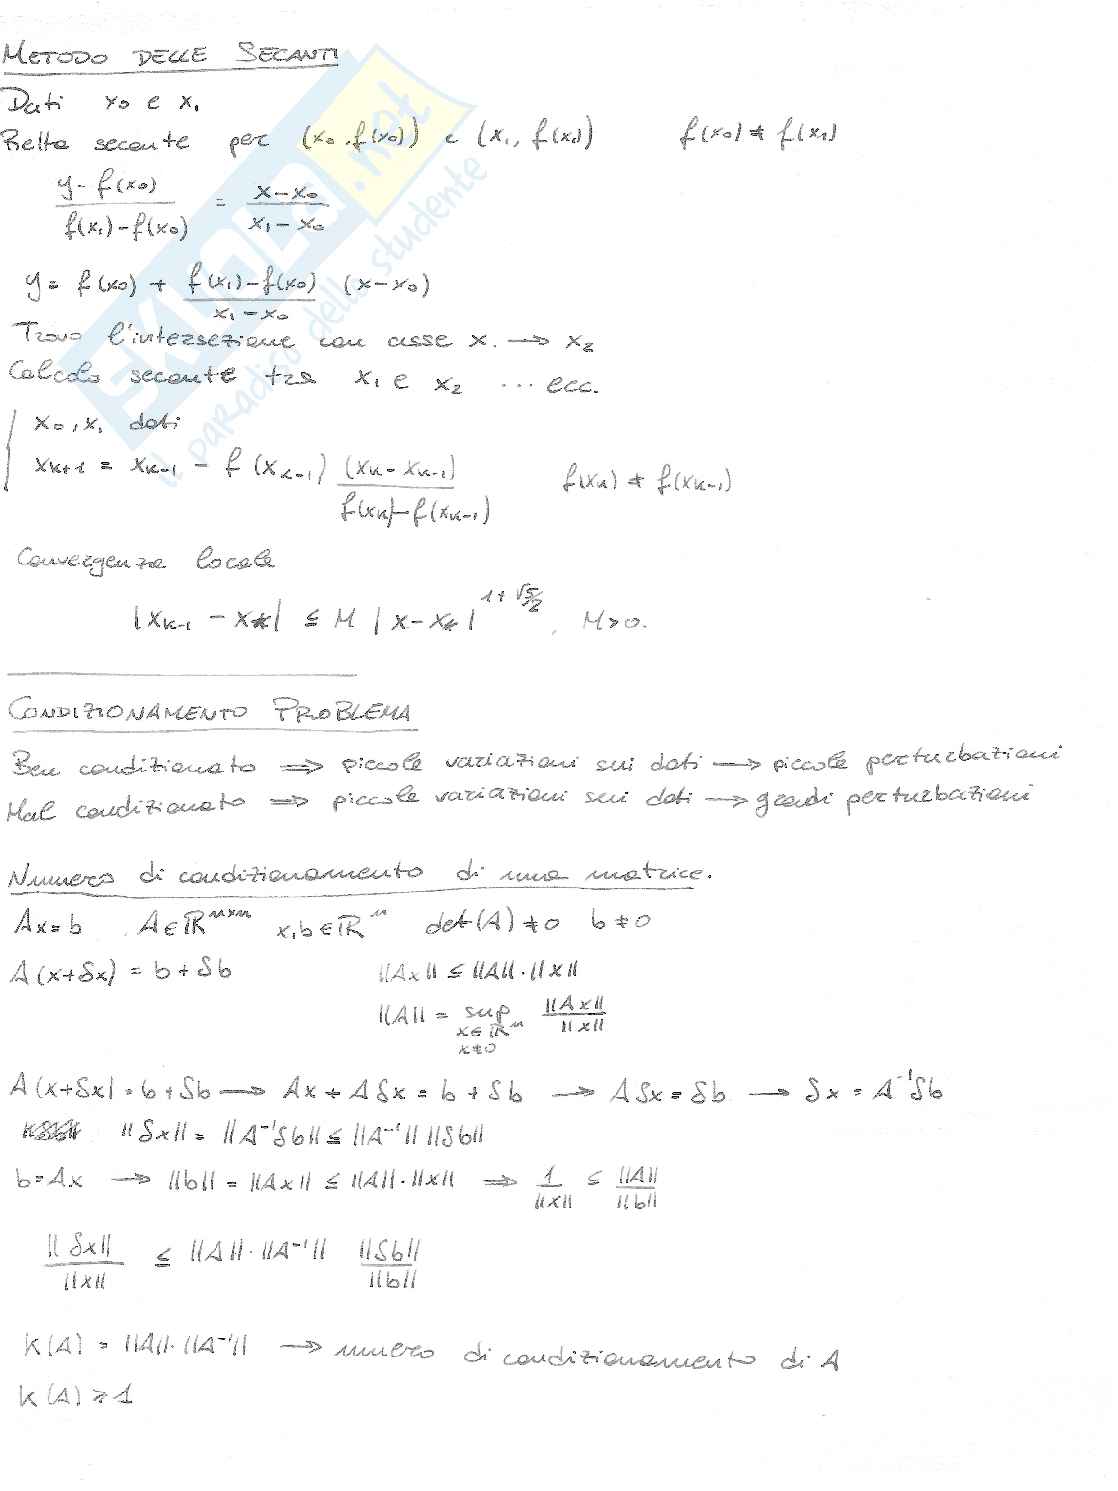 METODO DELLE SECANTI
Dati x₀ e x₁
Retta secante per (x₀, f(x₀)) e (x₁, f(x₁)) f(x₀) ≠ f(x₁)
(y - f(x₀)) / (f(x₁) - f(x₀)) = (x - x₀) / (x₁ - x₀)
y = f(x₀) + (f(x₁) - f(x₀)) / (x₁ - x₀) (x - x₀)
Trovo l'intersezione con asse x. → x₂
Calcolo secante tra x₁ e x₂ ... ecc.
{ x₀, x₁ dati
xₖ₊₁ = xₖ₋₁ - f(xₖ₋₁) (xₖ - xₖ₋₁) / (f(xₖ) - f(xₖ₋₁)) f(xₖ) ≠ f(xₖ₋₁)
Convergenza locale
|xₖ₋₁ - x*| ≤ M |x - x*|^(1+√5/2), M > 0.
CONDIZIONAMENTO PROBLEMA
Ben condizionato ⇒ piccole variazioni sui dati → piccole perturbazioni
Mal condizionato ⇒ piccole variazioni sui dati → grandi perturbazioni
Numero di condizionamento di una matrice.
Ax = b A ∈ ℝⁿˣⁿ x, b ∈ ℝⁿ det(A) ≠ 0 b ≠ 0
A(x + δx) = b + δb ||Ax|| ≤ ||A|| · ||x||
||A|| = sup x∈ℝⁿ x≠0 ||Ax|| / ||x||
A(x + δx) = b + δb → Ax + Aδx = b + δb → Aδx = δb → δx = A⁻¹δb
||δx|| = ||A⁻¹δb|| ≤ ||A⁻¹|| ||δb||
b = Ax → ||b|| = ||Ax|| ≤ ||A|| · ||x|| ⇒ 1 / ||x|| ≤ ||A|| / ||b||
||δx|| / ||x|| ≤ ||A|| · ||A⁻¹|| ||δb|| / ||b||
K(A) = ||A|| · ||A⁻¹|| → numero di condizionamento di A
K(A) ≥ 1
SKUOLA.net
il paradiso dello studente